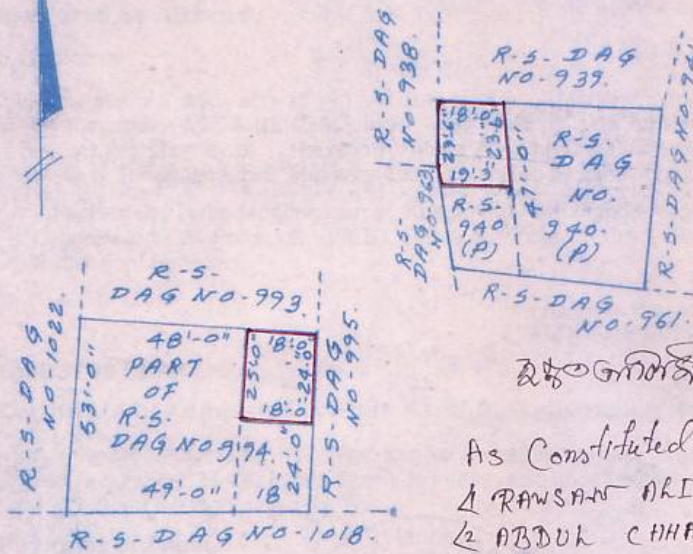 R-S-DAG
NO-938.
R-S-DAG
NO-939.
18'-0"
23'-6"
23'-6"
19'-3"
47'-0"
R-S-
DAG
NO.
940.
(P)
R-S-
940
(P)
R-S-
DAG
NO-963
R-S-DAG NO-94
R-S-DAG
NO-961.
R-S-
DAG NO-993.
R-S-DAG
NO-1022.
53'-0"
48'-0"
PART
OF
R-S-
DAG NO 994.
49'-0"
18'-0"
25'-0"
24'-0"
18'-0
24'-0"
18'
R-S-DAG
NO-995.
R-S-DAG NO-1018.
As Constituted
1 RAWSAN ALI
2 ABDUL